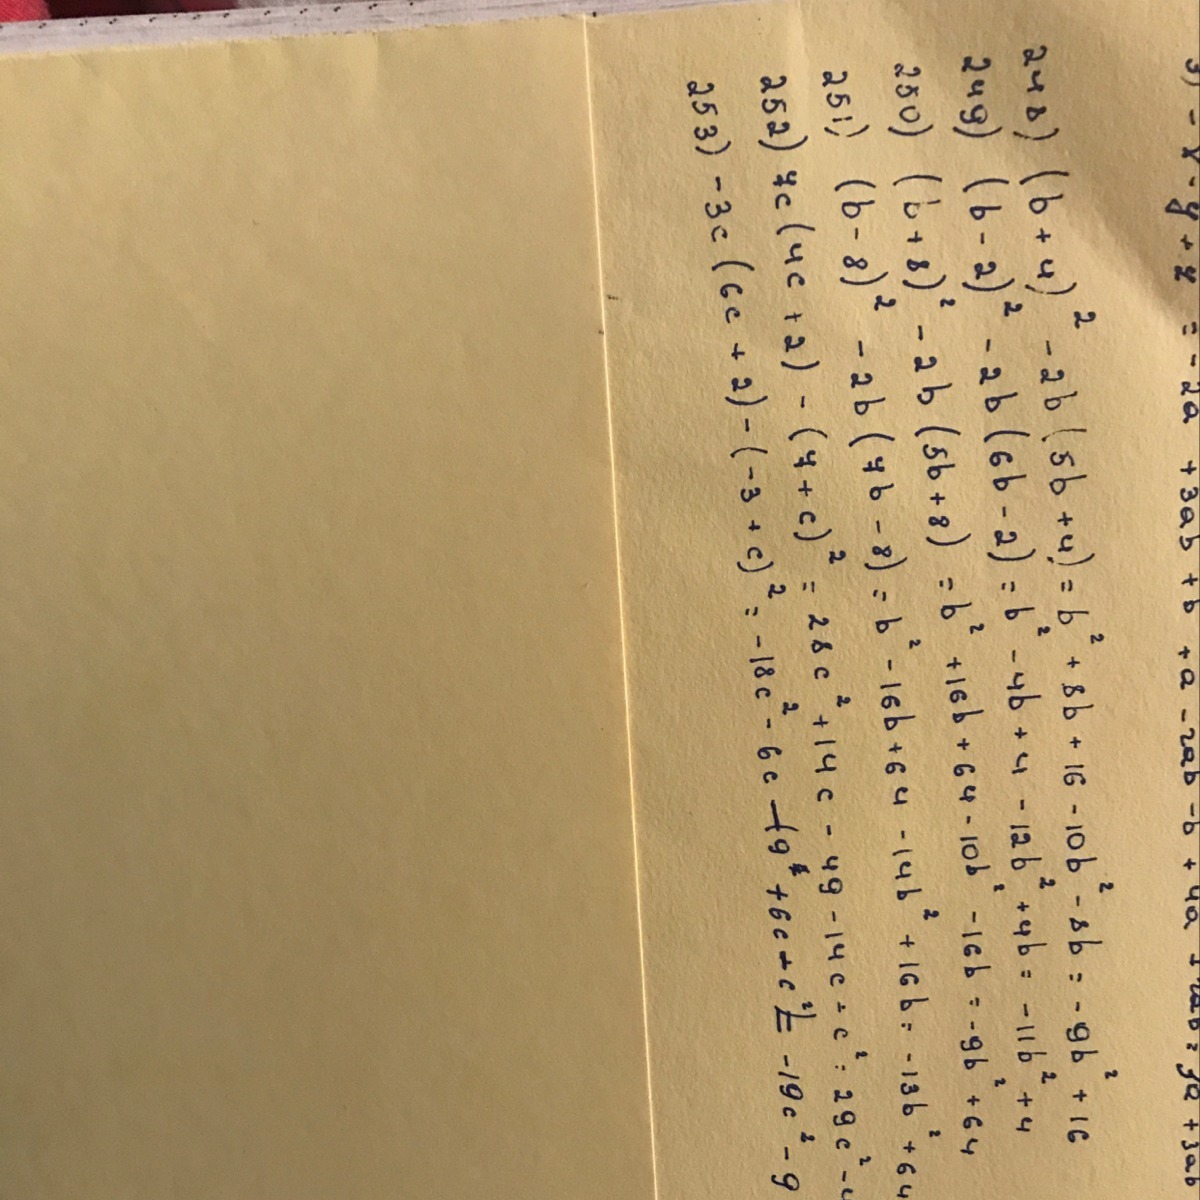 3) - x - y + z = -2a + 3ab + b + a - 2ab - b + 4a + 2ab = 3a + 3ab
248) (b + 4)² - 2b (5b + 4) = b² + 8b + 16 - 10b² - 8b = -9b² + 16
249) (b - 2)² - 2b (6b - 2) = b² - 4b + 4 - 12b² + 4b = -11b² + 4
250) (b + 8)² - 2b (5b + 8) = b² + 16b + 64 - 10b² - 16b = -9b² + 64
251) (b - 8)² - 2b (7b - 8) = b² - 16b + 64 - 14b² + 16b = -13b² + 64
252) 7c (4c + 2) - (7 + c)² = 28c² + 14c - 49 - 14c - c² = 29c² - 4
253) -3c (6c + 2) - (-3 + c)² = -18c² - 6c - 9 + 6c - c² = -19c² - 9